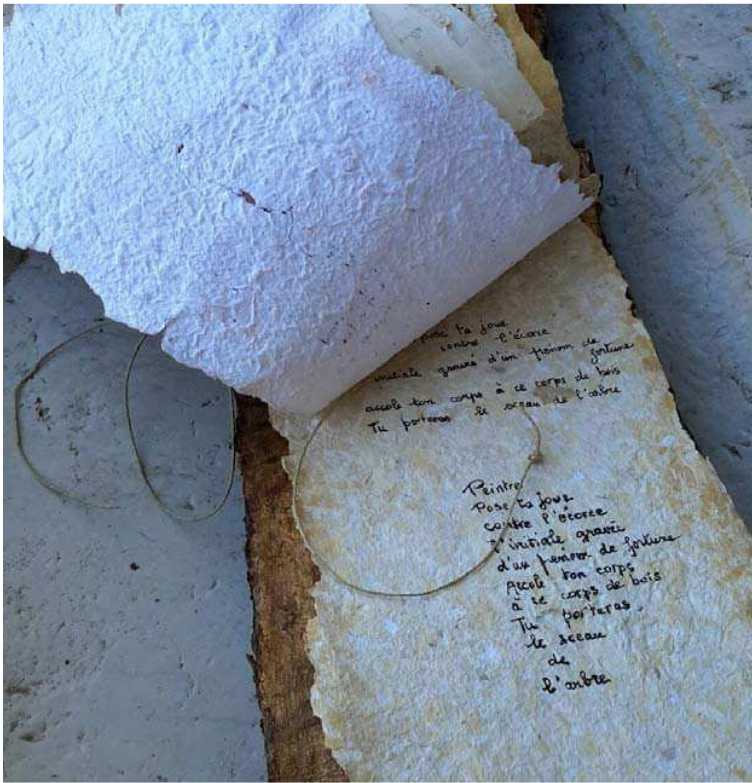 pose ta joue
contre l'écorce
initiale gravée d'un prénom de fortune
accole ton corps à ce corps de bois
Tu porteras le sceau de l'arbre
Peintre
Pose ta joue
contre l'écorce
l'initiale gravée
d'un prénom de fortune
Accole ton corps
à ce corps de bois
Tu porteras
le sceau
de
l'arbre